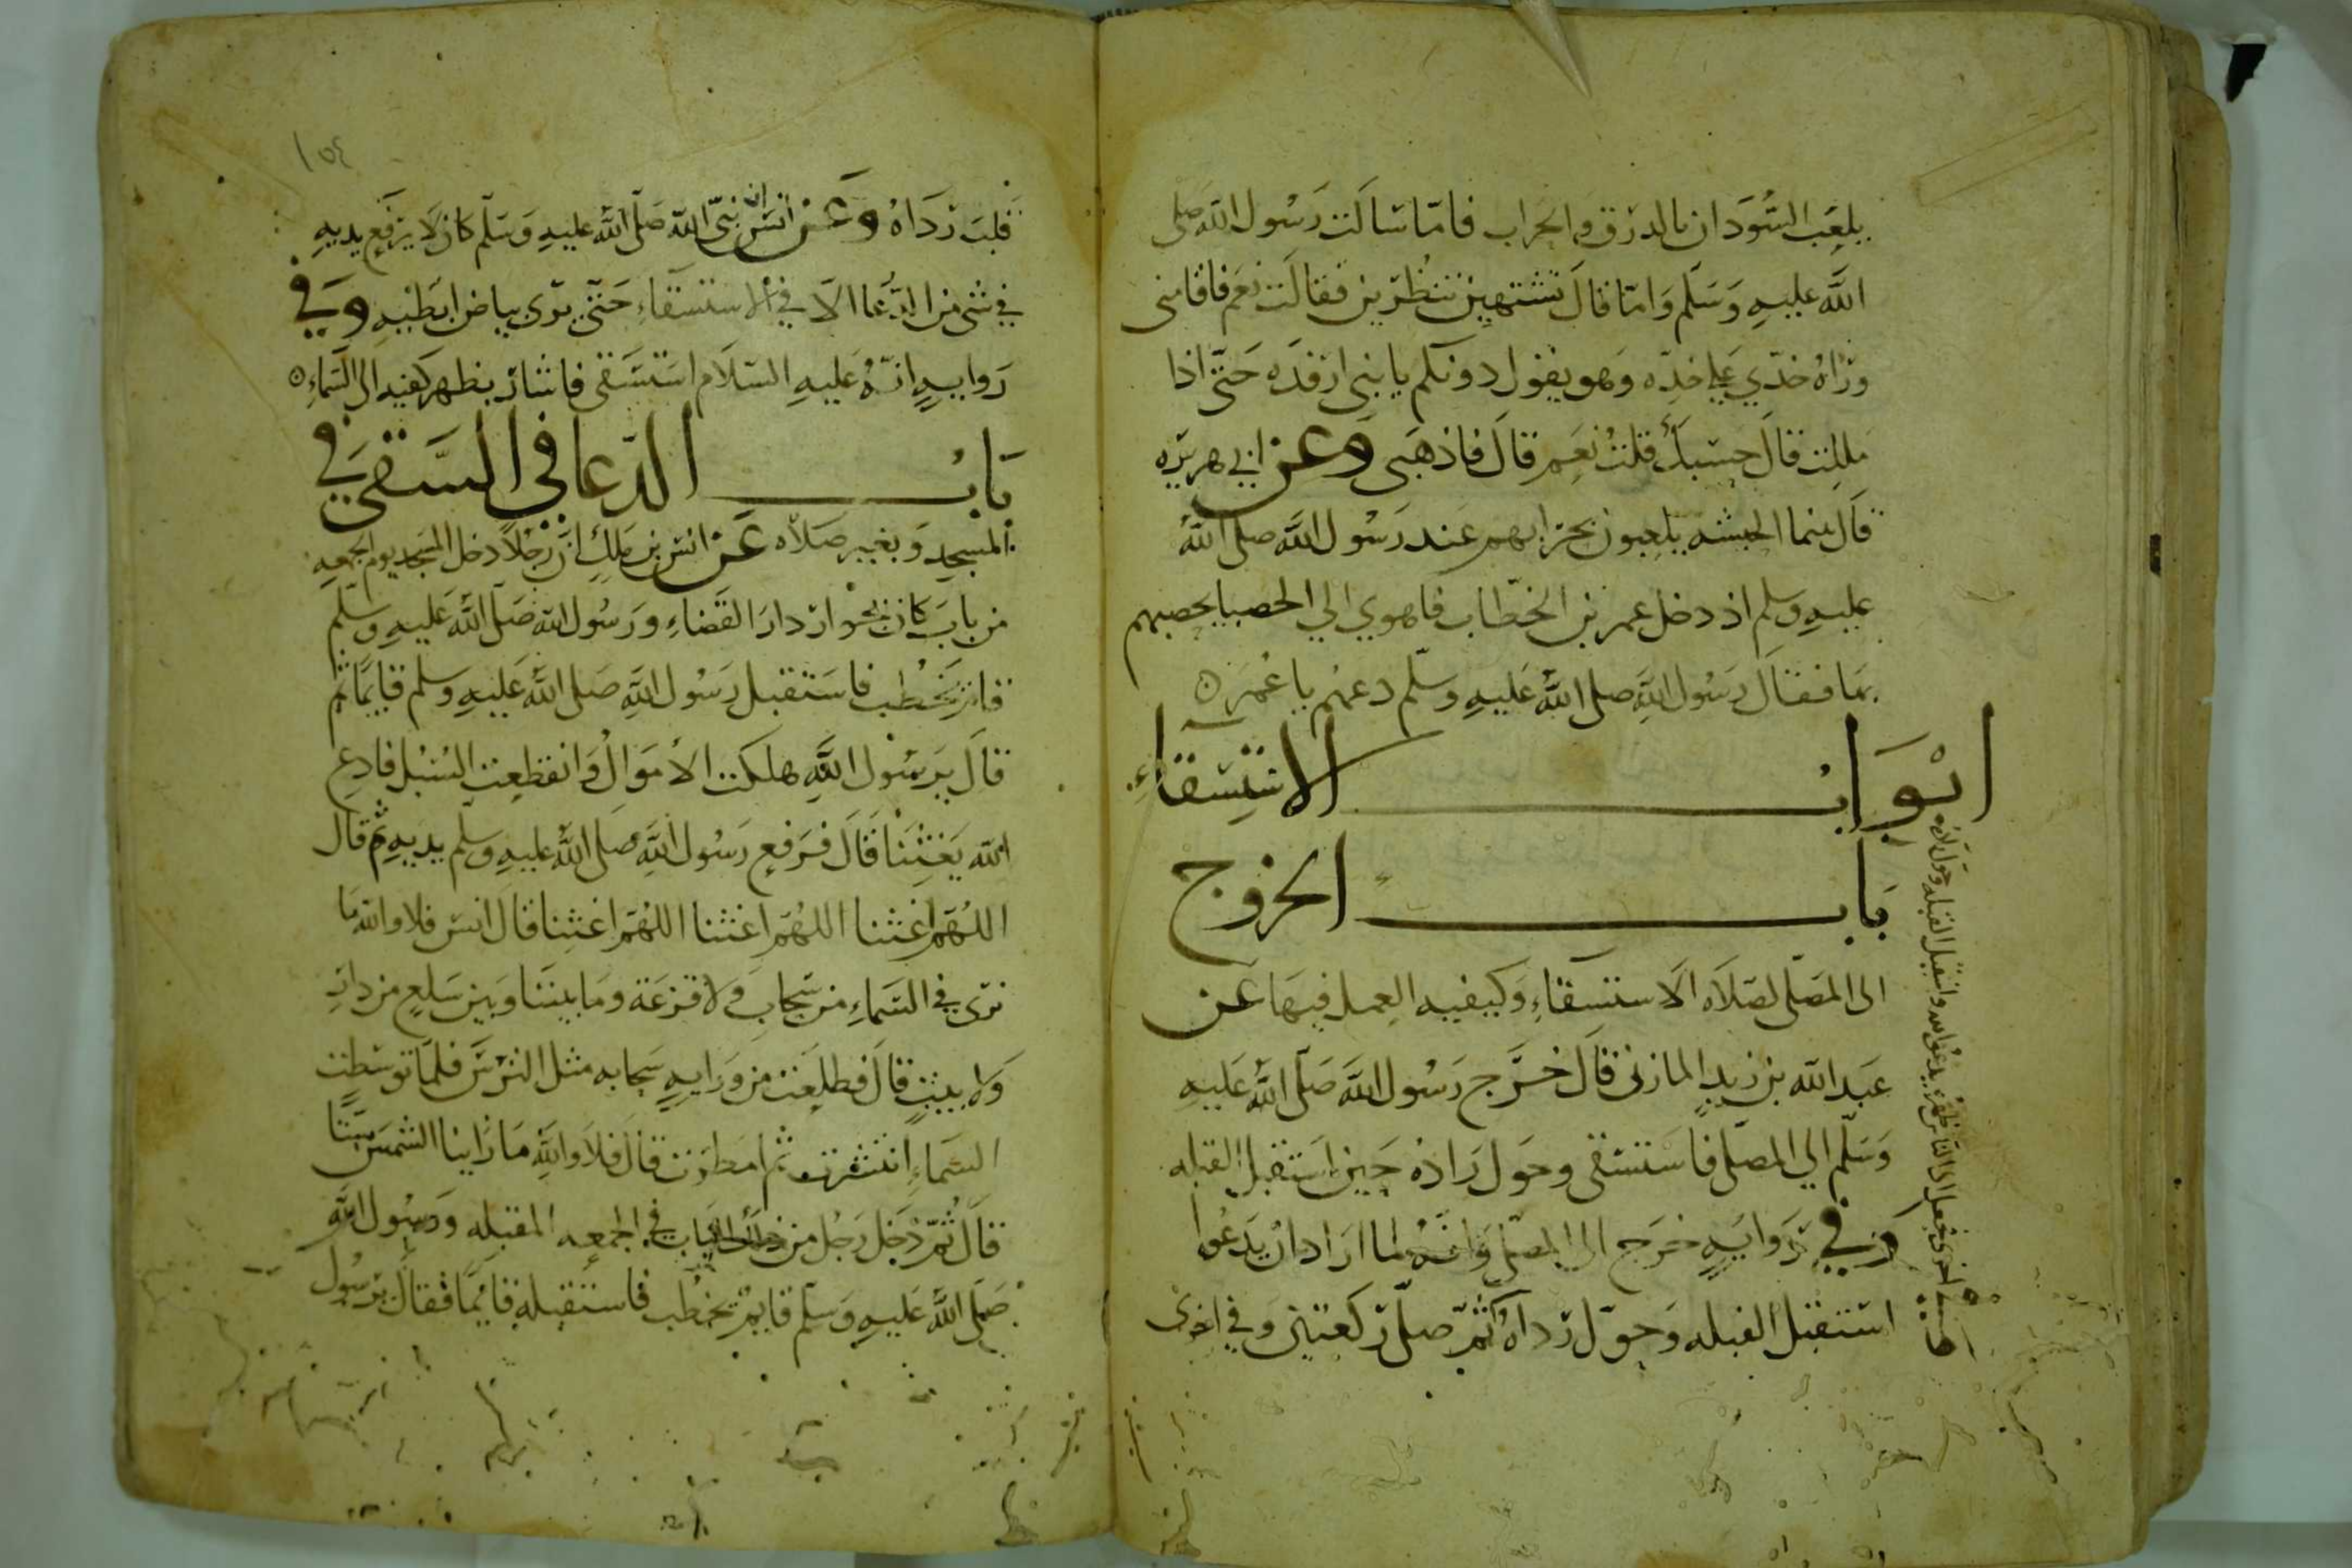 يلعب السودان بالدرق والحراب فاما سالت رسول الله صلى
الله عليه وسلم واما قال تشتهين تنظرين فقالت نعم فاقامنى
وراه خدي على خده وهو يقول دونكم يا بنى ارفده حتى اذا
مللت قال حسبك قلت نعم قال فاذهبى وعن ابي هريره
قال بينما الحبشه يلعبون بحرابهم عند رسول الله صلى الله
عليه وسلم اذ دخل عمر بن الخطاب فاهوي الي الحصبا يحصبهم
بها فقال رسول الله صلى الله عليه وسلم دعهم يا عمر ٥
ابواب الاستسقاء
باب الخروج
الى المصلى لصلاه الاستسقاء وكيفيه العمل فيها عن
عبد الله بن زيد المازنى قال خرج رسول الله صلى الله عليه
وسلم الي المصلى فاستسقى وحول رداه حين استقبل القبله
وفي روايه خرج الى المصلى وانه لما اراد ان يدعوا
استقبل القبله وحول رداه ثم صلى ركعتين وفي اخرى
فجعل الى الناس ظهره يدعو الله واستقبل القبله وحول رداه
فلبت رداه وعن انس ان نبى الله صلى الله عليه وسلم كان لا يرفع يديه
في شى من الدعا الا في الاستسقاء حتى يرى بياض ابطيه وفي
روايه انه عليه السلام استسقى فاشار بظهر كفيه الى السماء ٥
باب الدعا في السقى في
المسجد وبغير صلاه عن انس بن ملك ان رجلا دخل المسجد يوم الجمعه
من باب كان نحو دار القضاء ورسول الله صلى الله عليه وسلم
قايم يخطب فاستقبل رسول الله صلى الله عليه وسلم قايما ثم
قال يرسول الله هلكت الاموال وانقطعت السبل فادع
الله يغثنا قال فرفع رسول الله صلى الله عليه وسلم يديه ثم قال
اللهم اغثنا اللهم اغثنا اللهم اغثنا قال انس فلا والله ما
نرى في السماء من سحاب ولا قزعة وما بيننا وبين سلع من دار
ولا بيت قال فطلعت من ورايه سحابه مثل الترس فلما توسطت
السماء انتشرت ثم امطرت قال فلا والله ما راينا الشمس سبتا
قال ثم دخل رجل من ذلك الباب في الجمعه المقبله ورسول الله
صلى الله عليه وسلم قايم يخطب فاستقبله قايما فقال يرسول